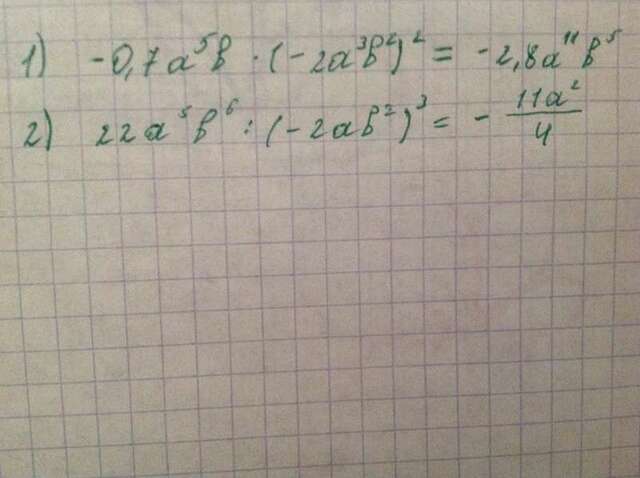 1) -0,7a⁵b · (-2a³b²)² = -2,8a¹¹b⁵
2) 22a⁵b⁶ : (-2ab²)³ = - 11a²/4